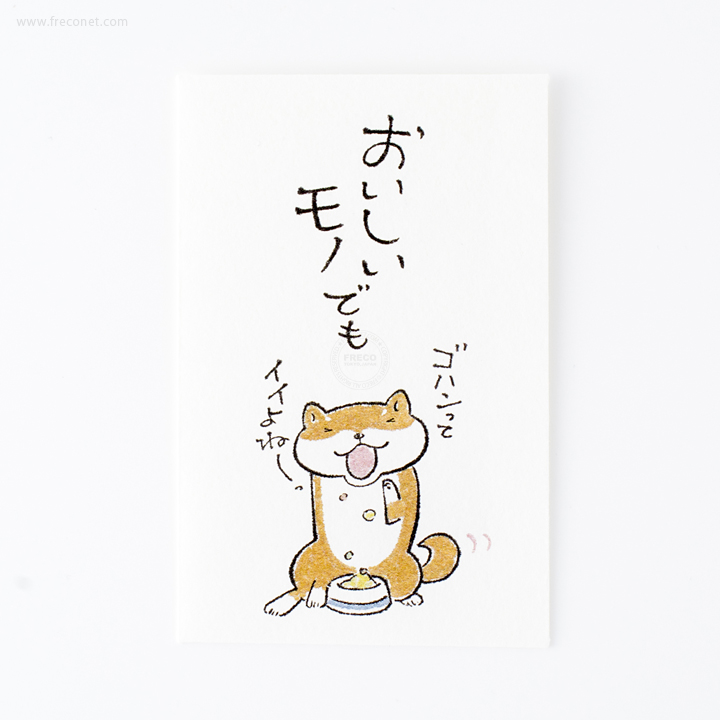 www.freconet.com
おいしい
モノ
でも
ゴハンって
イイよねーっ
FRECO